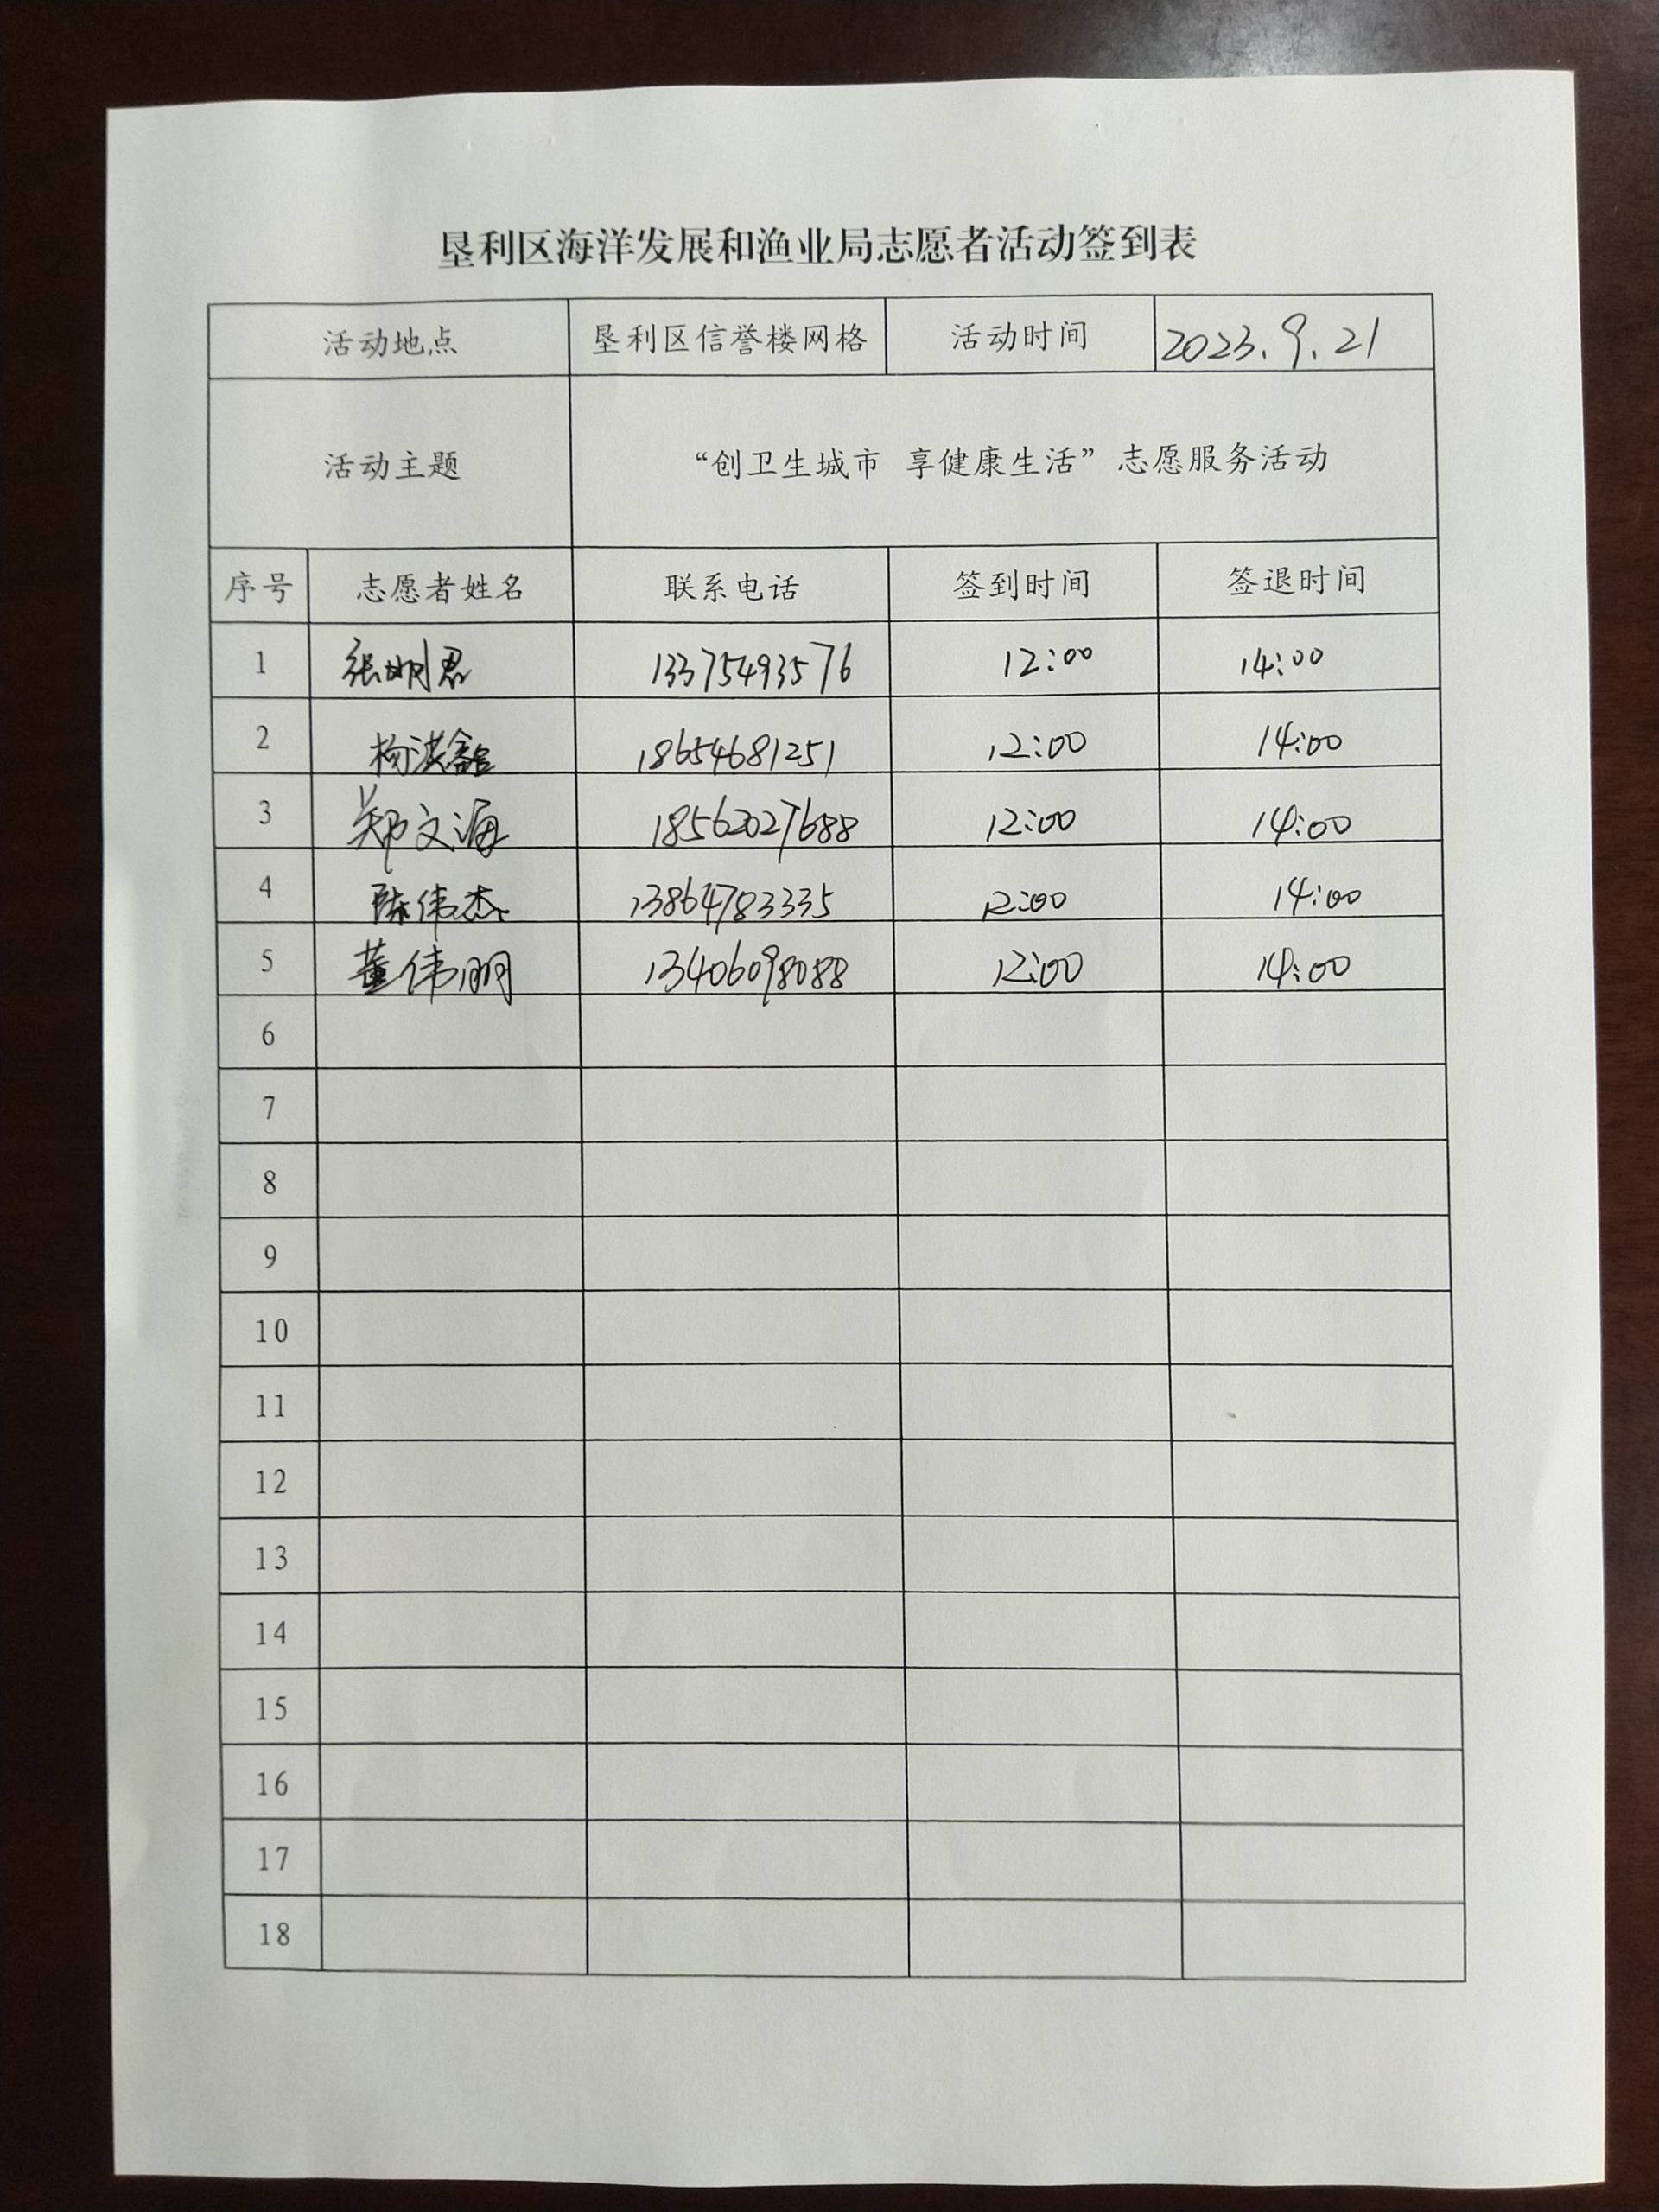 垦利区海洋发展和渔业局志愿者活动签到表
活动地点 垦利区信誉楼网格 活动时间 2023.9.21
活动主题 “创卫生城市 享健康生活”志愿服务活动
序号 志愿者姓名 联系电话 签到时间 签退时间
1 张明君 13375493576 12:00 14:00
2 杨洪鑫 18654681251 12:00 14:00
3 郑文海 18562027688 12:00 14:00
4 陈伟杰 13864783335 12:00 14:00
5 董伟明 13406098088 12:00 14:00
6
7
8
9
10
11
12
13
14
15
16
17
18